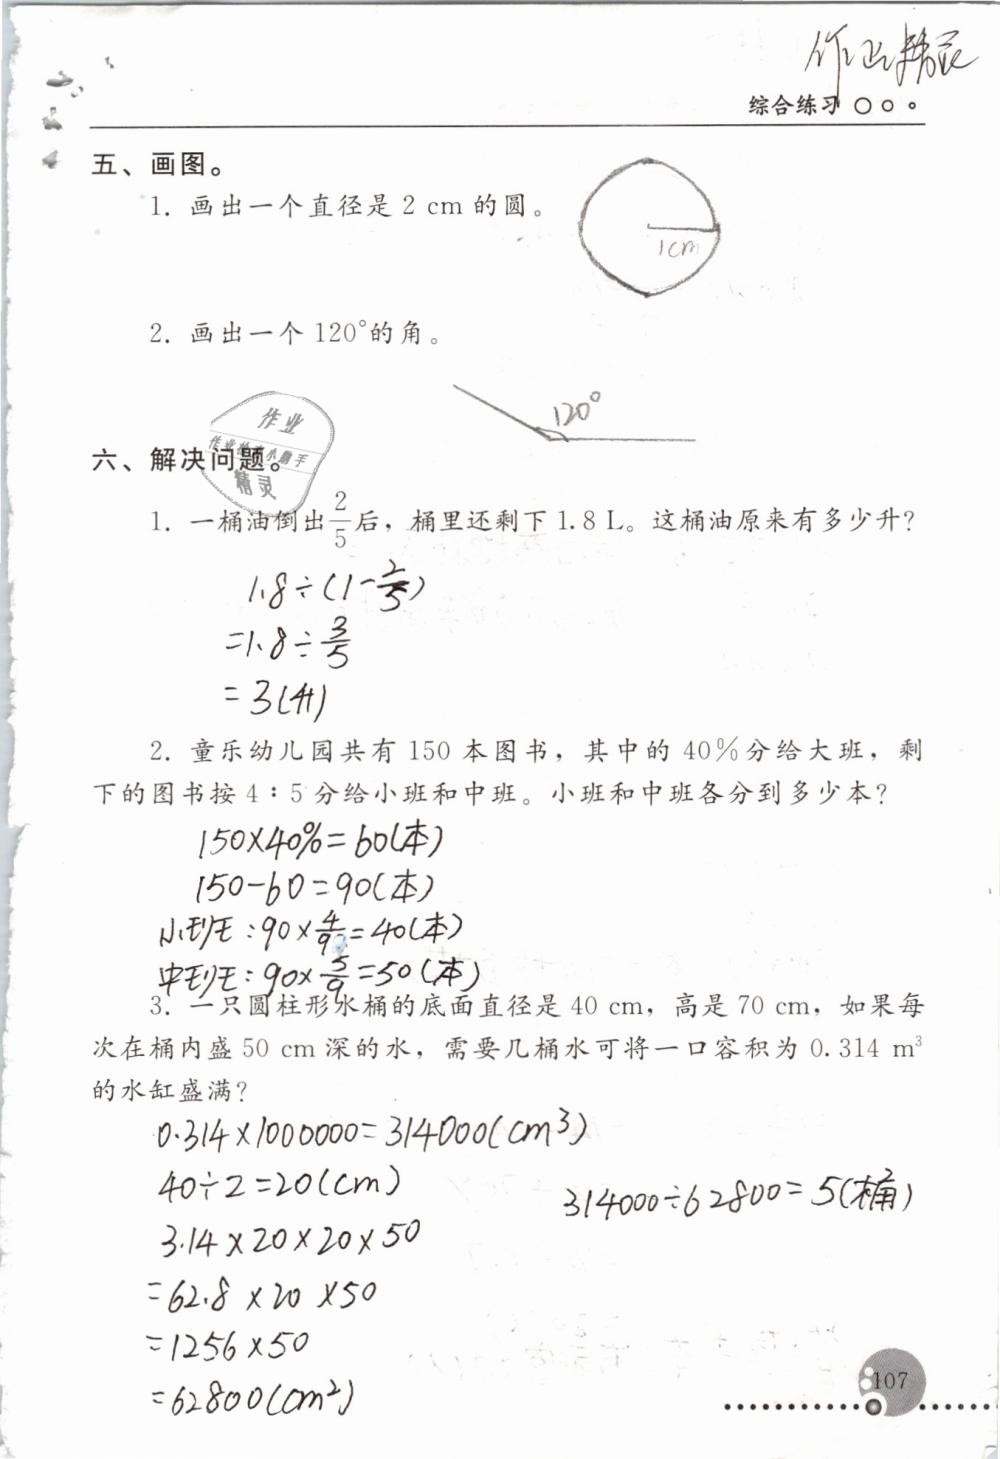 作业精灵
综合练习
五、画图。
1. 画出一个直径是 2 cm 的圆。
1cm
2. 画出一个 120°的角。
120°
作业
作业的小助手
精灵
六、解决问题。
1. 一桶油倒出2/5后，桶里还剩下 1.8 L。这桶油原来有多少升？
1.8÷(1-2/5)
=1.8÷3/5
=3(升)
2. 童乐幼儿园共有 150 本图书，其中的 40%分给大班，剩
下的图书按 4∶5 分给小班和中班。小班和中班各分到多少本？
150×40%=60(本)
150-60=90(本)
小班:90×4/9=40(本)
中班:90×5/9=50(本)
3. 一只圆柱形水桶的底面直径是 40 cm，高是 70 cm，如果每
次在桶内盛 50 cm 深的水，需要几桶水可将一口容积为 0.314 m³
的水缸盛满？
0.314×1000000=314000(cm³)
40÷2=20(cm)
314000÷62800=5(桶)
3.14×20×20×50
=62.8×20×50
=1256×50
=62800(cm²)
107